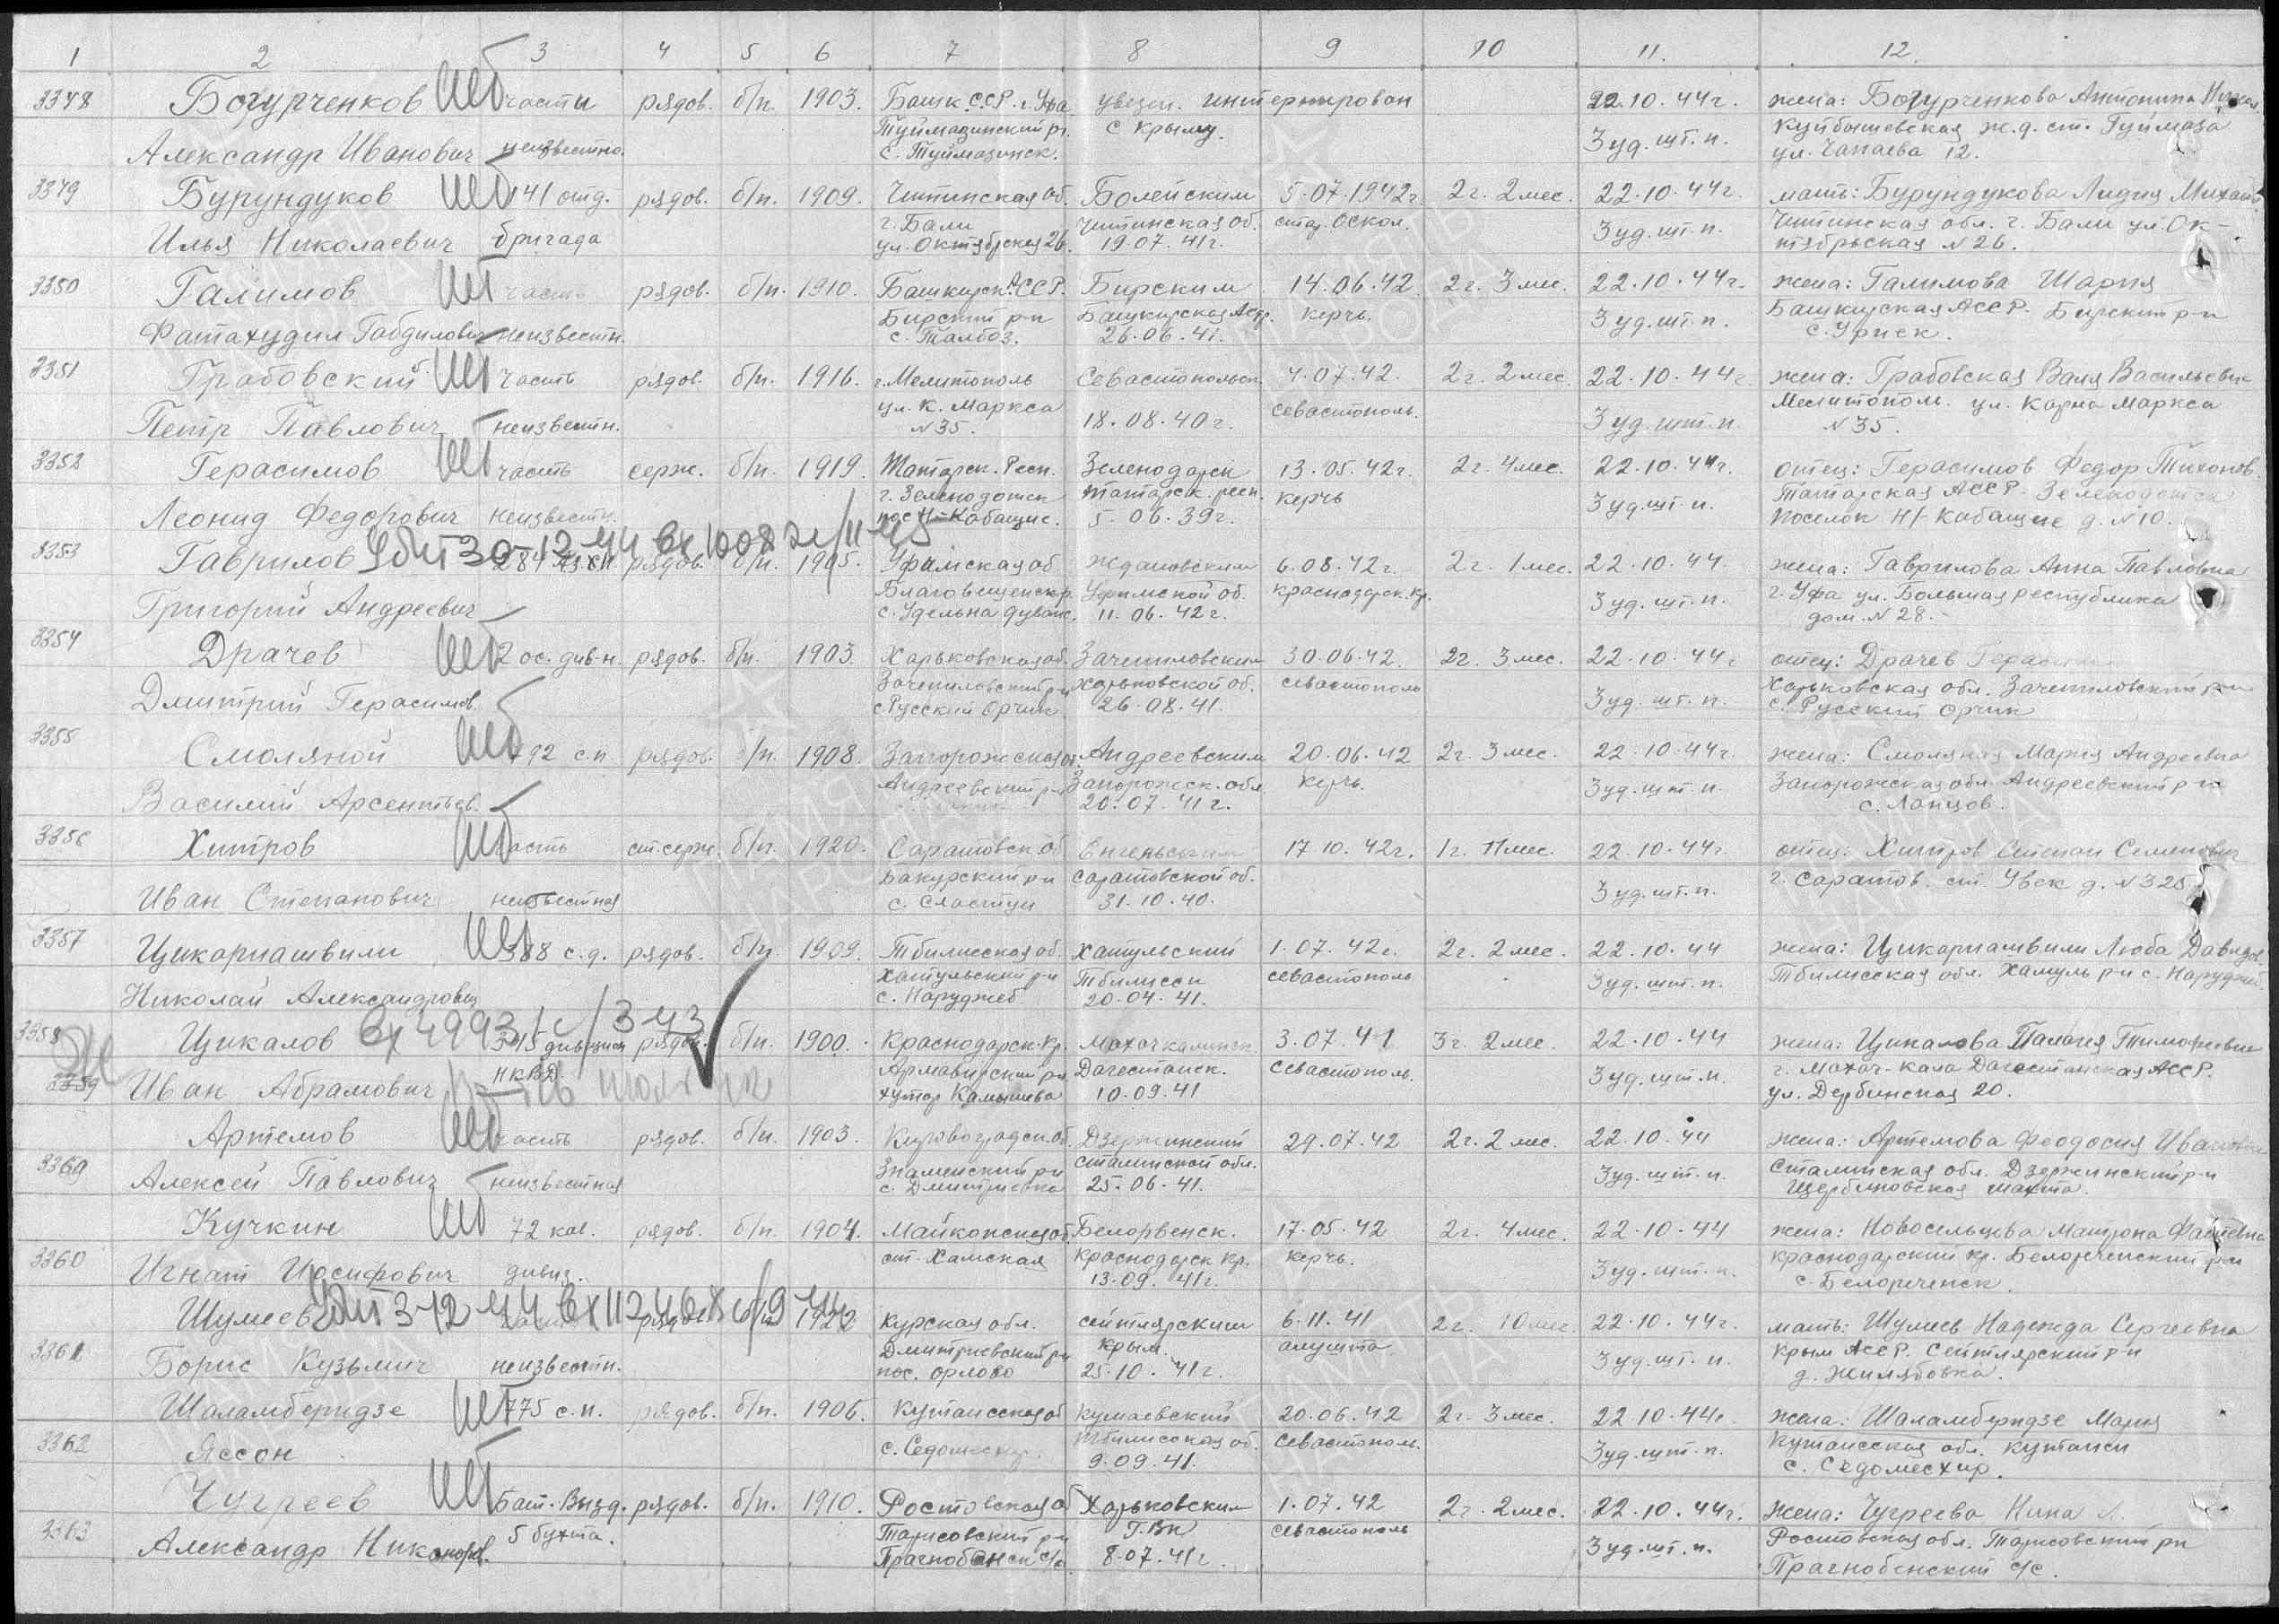 1 2 3 4 5 6 7 8 9 10 11. 12.
3348 Богурченков части рядов. б/п. 1903. Башк. ССР. г. Уфа увезен. интернирован 22.10.44г. жена: Богурченкова Антонина
Туймазинский р. с Крыму. Куйбышевская ж.д. ст. Туймаза
Александр Иванович неизвестно. с. Туймазинск. 3 уд. шт. п. ул. Чапаева 12.
3349 Бурундуков 141 отд. рядов. б/п. 1909. Читинская об. Болейским 5.07.1942г 2г. 2мес. 22.10.44г. мать: Бурундукова Лидия Михайл.
г. Бали Читинская об. ст. Оскол. Читинская обл. г. Бали ул. Ок-
Илья Николаевич бригада ул. Октябрская 26. 19.07.41г. 3 уд. шт. п. тябрьская №26.
3350 Галимов часть рядов. б/п. 1910. Башкирск. АССР. Бирским 14.06.42 2г. 3мес. 22.10.44г. жена: Галимова Шария
Бирский р-н Башкирская Аср. Керчь. Башкирская АССР. Бирский р-н
Фатахудин неизвестн. с. Талбоз. 26.06.41. 3 уд. шт. п. с. Уриск.
3351 Грабовский часть рядов. б/п. 1916. г. Мелитополь Севастопольск. 4.07.42. 2г. 2мес. 22.10.44г. жена: Грабовская Валя Васильевн
ул. К. Маркса Севастополь. Мелитопом. ул. Карла Маркса
Петр Павлович неизвестн. №35. 18.08.40г. 3 уд. шт. п. №35.
3352 Герасимов часть серж. б/п. 1919. Татарск. Респ. Зеленодорск 13.05.42г. 2г. 4мес. 22.10.44г. отец: Герасимов Федор Тихонов.
г. Зеленодотск Татарск. респ. Керчь Татарская АССР. Зеленодотск
Леонид Федорович неизвестн. пос. Н-Кабащис. 5.06.39г. 3 уд. шт. п. поселок Н/-Кабащие д. №10.
Убит 30-12-44 вх 10087с/11-45
3353 Гаврилов 284 рядов. б/п. 1905. Уфимская об Ждановским 6.08.42г. 2г. 1мес. 22.10.44. жена: Гаврилова Анна Павловна
Благовещенск р. Уфимской об. Краснодарск. кр. г. Уфа ул. Большая республика
Григорий Андреевич с. Удельна дуване. 11.06.42г. 3 уд. шт. п. дом. №28.
3354 Драчев 2 ос. див-н. рядов. б/п. 1903. Харьковская об. Зачепиловским 30.06.42. 2г. 3мес. 22.10.44г отец: Драчев Герасим
Зачепиловский р-н Харьковской об. Севастополь Харьковская обл. Зачепиловский р-н
Дмитрий Герасимов. с Русский Орчик 26.08.41. 3 уд. шт. п. с. Русский Орчик
3355 Смоляной 792 с.п. рядов. б/п. 1908. Запорожская об. Андреевским 20.06.42 2г. 3мес. 22.10.44г. жена: Смоляная Мария Андреевна
Андреевский р-н Запорожск. обл. Керчь. Запорожская обл. Андреевский р-н
Василий Арсентьев. 20.07.41г. 3 уд. шт. п. с. Ланцов.
3356 Хитров часть ст серж. б/п. 1920. Саратовск. об Енгельским 17.10.42г. 1г. 11мес. 22.10.44г отец: Хитров Степан Семенович
Бакурский р-н Саратовской об. г. Саратов. ст. Увек д. №325
Иван Степанович неизвестная с. Сластуи 31.10.40. 3 уд. шт. п.
3357 Цикарашвили 388 с.д. рядов. б/п. 1909. Тбилисская об. Хатульский 1.07.42г. 2г. 2мес. 22.10.44 жена: Цикаришвили Люба Давидов.
Хатульский р-н Тбилисси Севастополь Тбилисская обл. Хамуль р-н с. Наруджей.
Николай Александрович с. Наруджеб 20.04.41. 3 уд. шт. п.
вх 4993/с/3-43
3358 Цикалов 345 дивизия рядов. б/п. 1900. Краснодарск. Кр. Махачкалинск. 3.07.41 3г. 2мес. 22.10.44 жена: Цикалова Палагея Тимофеевн
НКВД. Армавирский р-н Дагестанск. Севастополь. г. Махач-кала Дагестанская АССР.
3359 Иван Абрамович хутор Камышева 10.09.41 3 уд. шт. п. ул. Дербинская 20.
Артемов часть рядов. б/п. 1903. Кировоградск. об. Дзержинский 29.07.42 2г. 2мес. 22.10.44 жена: Артемова Феодосия Ивановна
3369 Знаменский р-н Сталинской обл. Сталинская обл. Дзержинский р-н
Алексей Павлович неизвестная с. Дмитриевка 25.06.41. 3 уд. шт. п. Щербиновская шахта.
Кучкин 72 кав. рядов. б/п. 1904. Майкопская об. Белорвенск. 17.05.42 2г. 4мес. 22.10.44 жена: Новосельцева Матрона
3360 ст. Хамская Краснодарск кр. Керчь. Краснодарский кр. Белореченский р-н
Игнат Иосифович дивиз. 13.09.41г. 3 уд. шт. п. с. Белореченск.
Убит 3-12-44 вх 11246
Шумеев 1922 Курская обл. Сейтлярским 6.11.41 2г. 10мес. 22.10.44г. мать: Шумеев Надежда Сергеевна
3361 Дмитриевский р-н Крым. Алушта Крым АССР. Сейтлярский р-н
Борис Кузьмич неизвестн. пос. Орлово 25.10.41г. 3 уд. шт. п. д. Желябовка.
Шаламберидзе 775 с.п. рядов. б/п. 1906. Кутаисская об Кутаевский 20.06.42 2г. 3мес. 22.10.44г. жена: Шаламберидзе Мария
3362 Яссон с. Седомесхир. Тбилисская об. Севастополь. 3 уд. шт. п. Кутаисская обл. Кутаиси
9.09.41. с. Седомесхир.
Чугреев Бат. Вызд. рядов. б/п. 1910. Ростовская о Харьковским 1.07.42 2г. 2мес. 22.10.44г. жена: Чугреева Нина
3363 5 бухта. Тарасовский р-н Г.Вк Севастополь Ростовская обл. Тарасовский р-н
Александр Никоноров. 8.07.41г. 3 уд. шт. п. Прагнобенский с/с.
ПАМЯТЬ НАРОДА